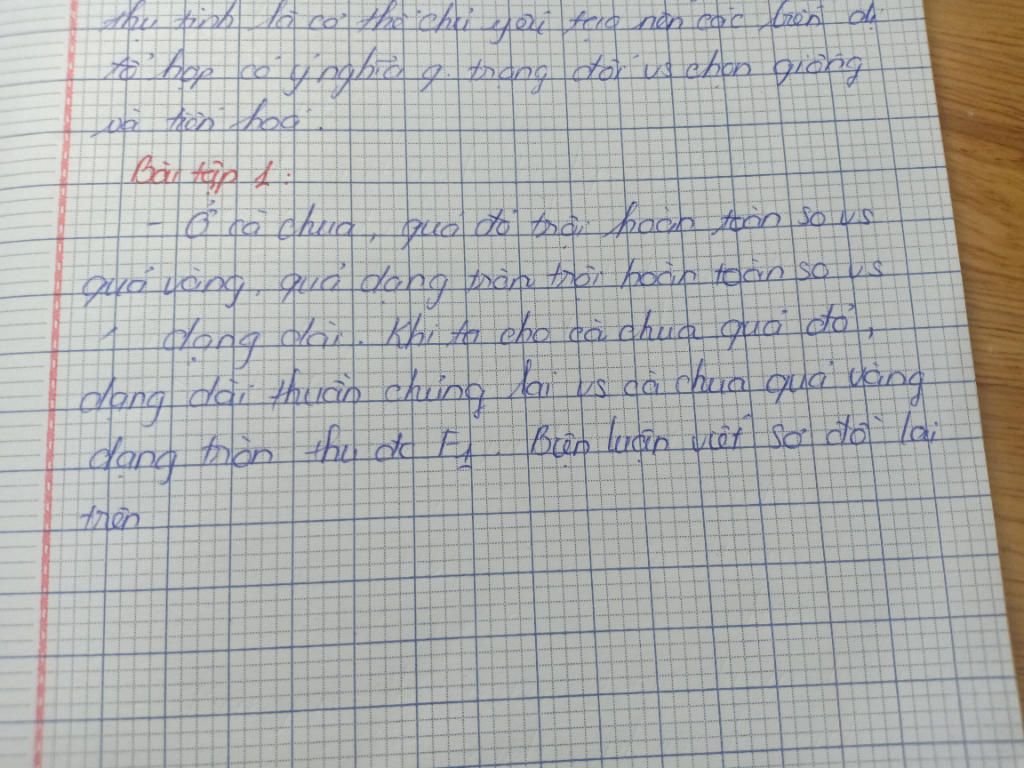 thụ tinh là cơ thế chủ yếu tạo nên các biến dị
tổ hợp có ý nghĩa q. trọng đối vs chọn giống
và tiến hoá.
Bài tập 1:
- Ở cà chua, quả đỏ trội hoàn toàn so vs
quả vàng, quả dạng tròn trội hoàn toàn so vs
dạng dài. Khi ta cho cà chua quả đỏ,
dạng dài thuần chủng lai vs cà chua quả vàng
dạng tròn thu đc F1. Biện luận viết sơ đồ lai
trên